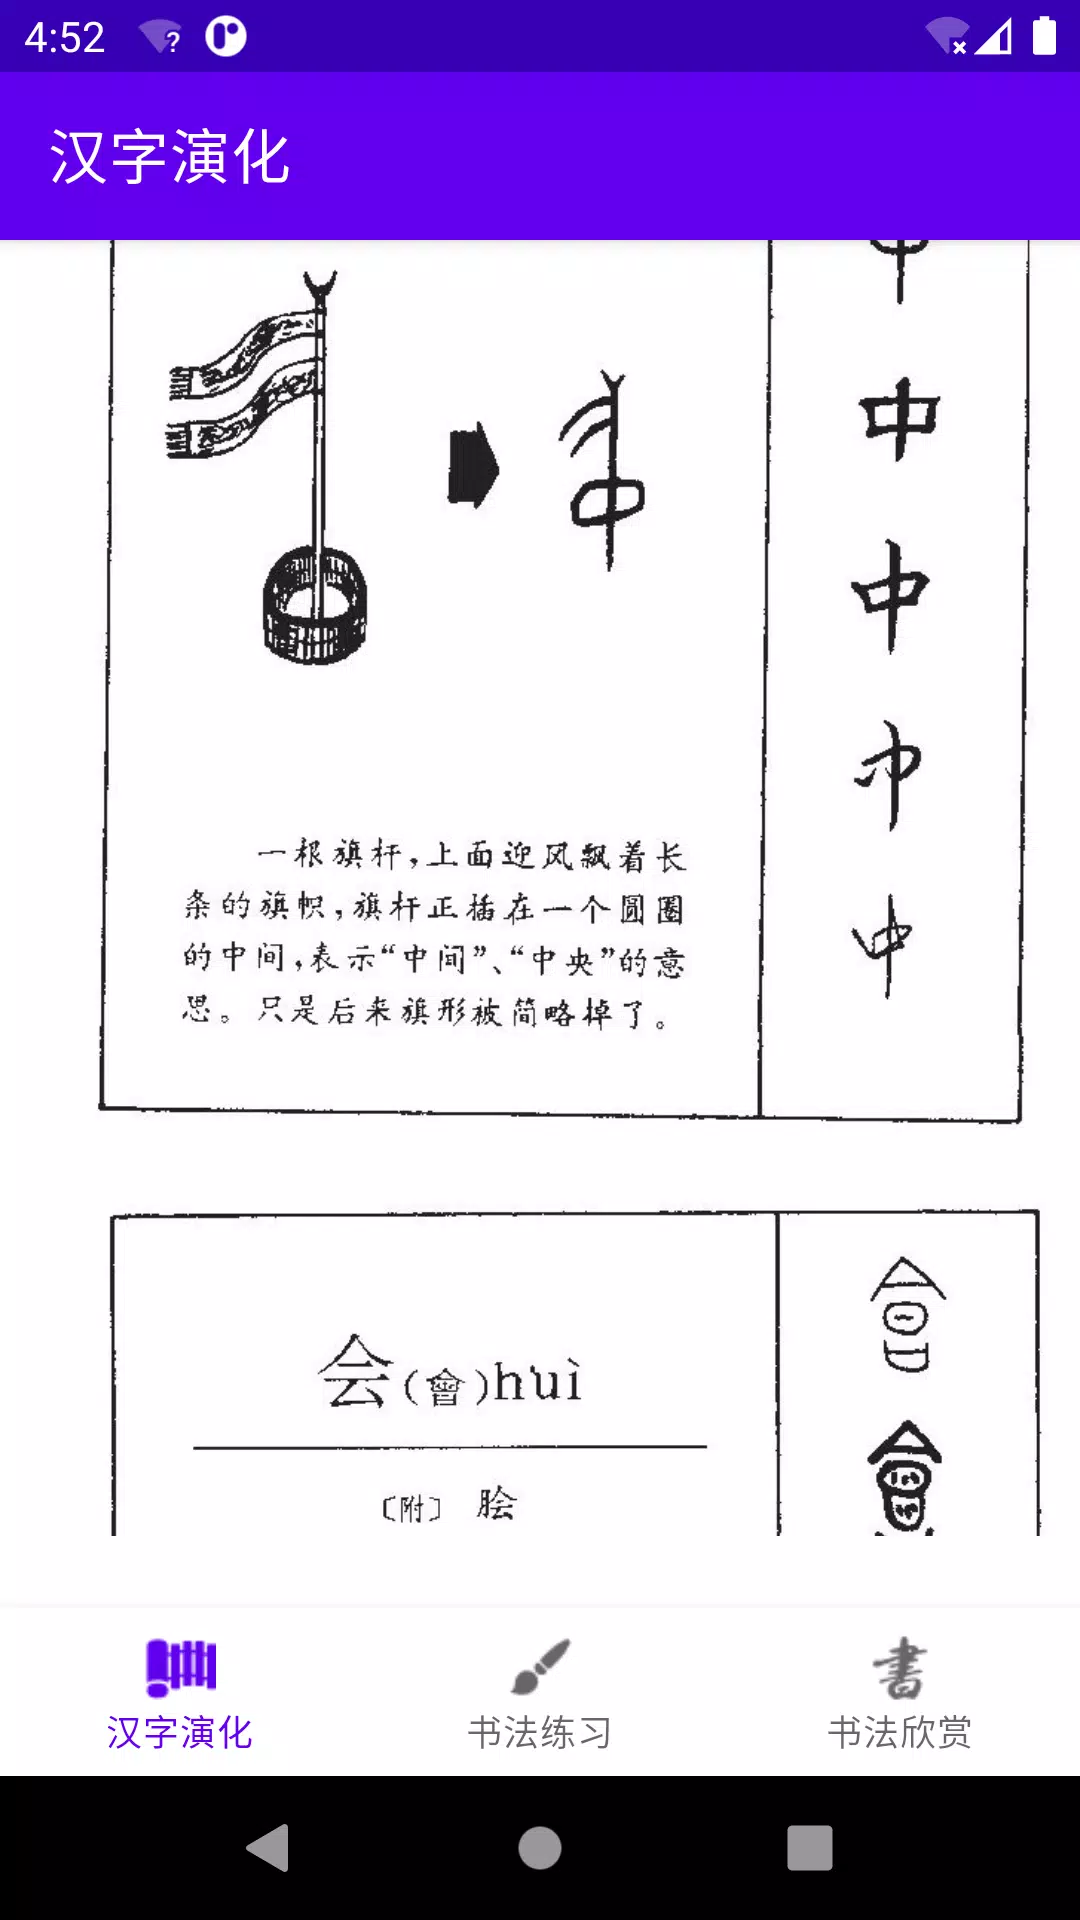 4:52
汉字演化
中
中
中
中
一根旗杆，上面迎风飘着长
条的旗帜，旗杆正插在一个圆圈
的中间，表示“中间”、“中央”的意
思。只是后来旗形被简略掉了。
会(會)huì
〔附〕 脍
汉字演化
书法练习
書
书法欣赏